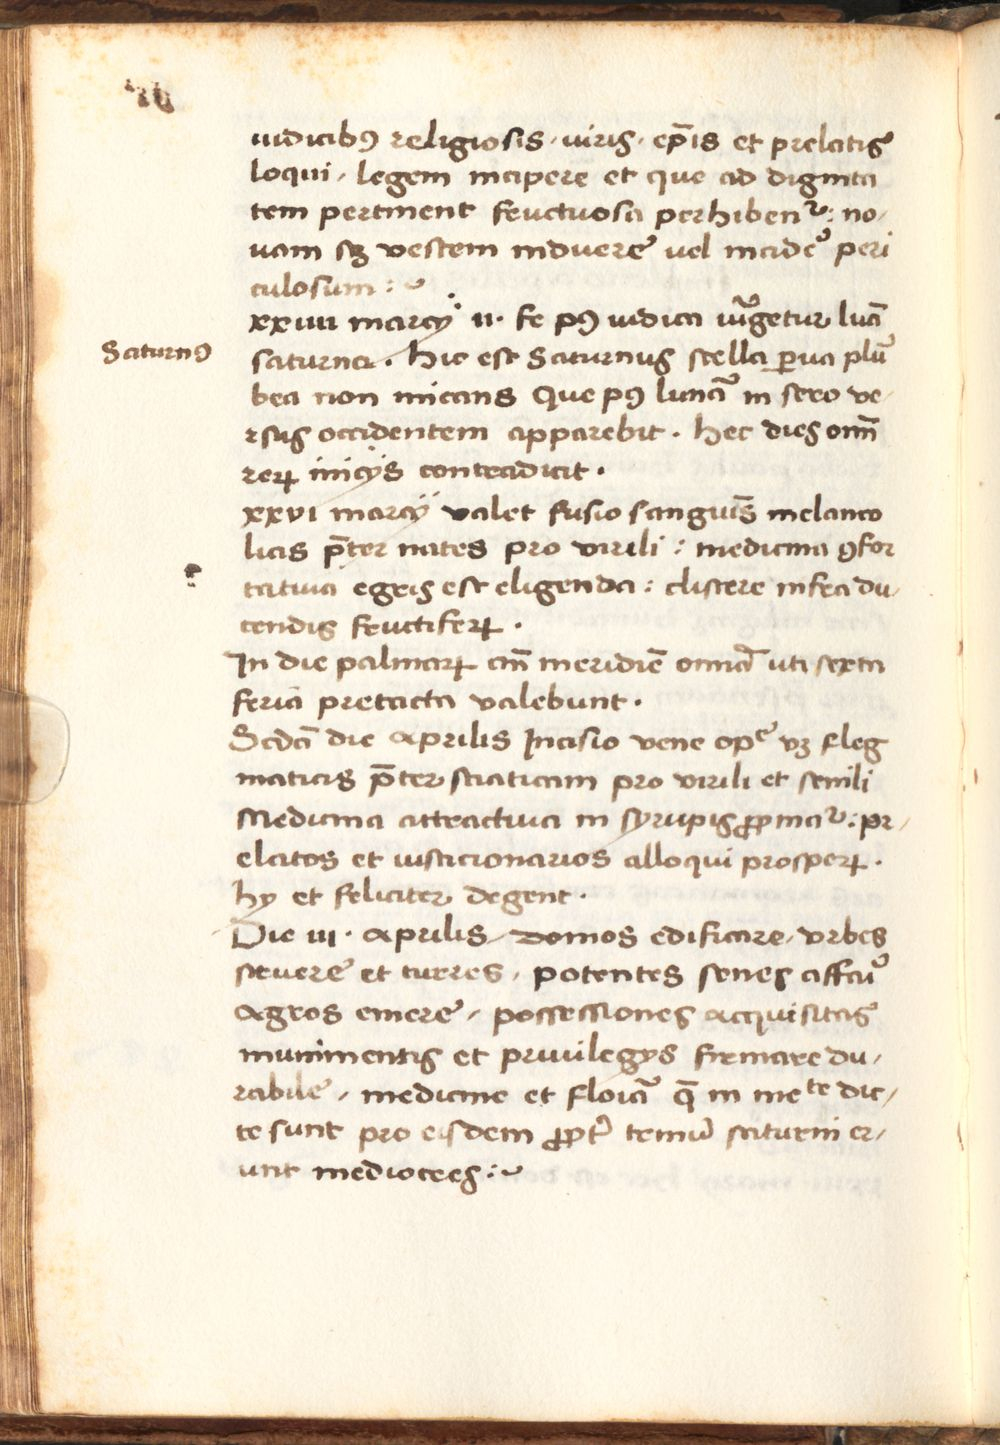 iudicibꝰ religiosis · uiris · ep̄is et prelatis
loqui , legem incipere et que ad dignita
tem pertinent fructuosa perhibent᷑ : no,
uam sꝫ vestem induere uel incidē peri
culosum :
xxiiii marcij ii · fe pꝰ iudica iūgetur luā
Saturnꝰ
saturna · Hic est Saturnus stella ꝑua plū
bea non micans Que pꝰ lunā in sero ve,
rsus occidentem apparebit · hec dies om̄
reꝝ inicijs contradicit ·
xxvi marcij valet fusio sanguīs melanco
licis p̄ter nates pro virili : medicina ꝯfor
tatiua egris est eligenda : clistere infra du,
cendis fructiferꝝ ·
In die palmarꝝ an̄ meridiē omīa uti sexta
feria pretacta valebunt ·
Scd̄a die Aprilis Incisio vene opͤ vꝫ fleg
maticis p̄ter sciaticam pro virili et senili
Medicina attractiua in syrupis ꝓpina᷑ : pr,
elatos et iusticionarios alloqui prosperꝝ ·
hy et feliciter degent ·
Die iii · Aprilis, domos edificare, vrbes
struere et turres, potentes senes affari
Agros emere, possessiones acquisitas
munimentis et priuilegijs firmare du,
rabile, medicine et flo͞ia q̄ in meᵗᵉ dic,
te sunt pro eisdem ꝓpt̄ termīū saturni er,
unt mediocres :